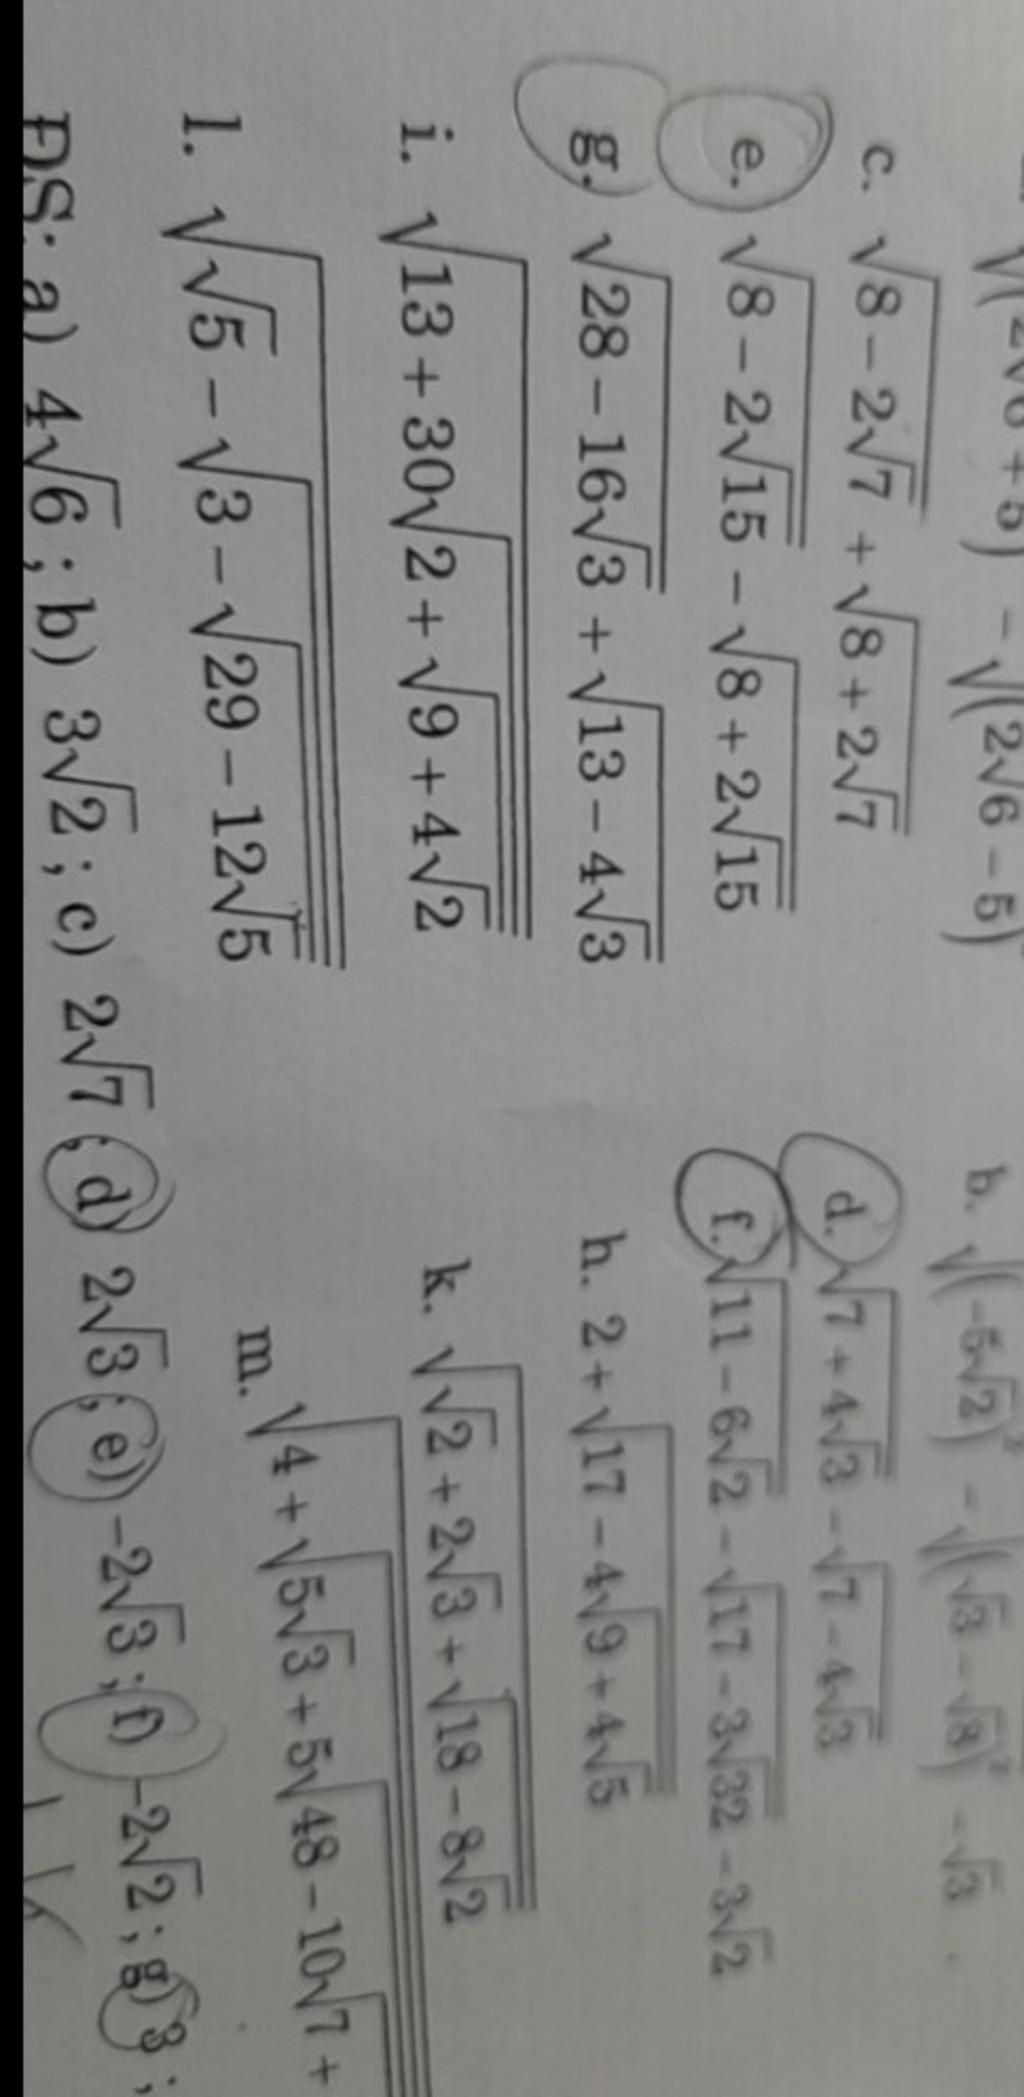 √(2√6 + 5) − √(2√6 − 5)
b. √(−5√2)² − √(√3 − √8)² − √3
c. √(8 − 2√7) + √(8 + 2√7)
d. √(7 + 4√3) − √(7 − 4√3)
e. √(8 − 2√15) − √(8 + 2√15)
f. √(11 − 6√2) − √(17 − 3√32) − 3√2
g. √(28 − 16√3) + √(13 − 4√3)
h. 2 + √(17 − 4√(9 + 4√5))
i. √(13 + 30√(2 + √(9 + 4√2)))
k. √(√2 + 2√3 + √(18 − 8√2))
l. √(√5 − √(3 − √(29 − 12√5)))
m. √(4 + √(5√3 + 5√(48 − 10√(7 +
ĐS: a) 4√6 ; b) 3√2 ; c) 2√7 ; d) 2√3 ; e) −2√3 ; f) −2√2 ; g) 3 ;